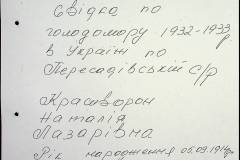 Свідка по
голодомору 1932-1933 р
в Україні по
Пересадівській с/р
Красворон
Наталія
Лазарівна
Рік народження 05.09.1914р.